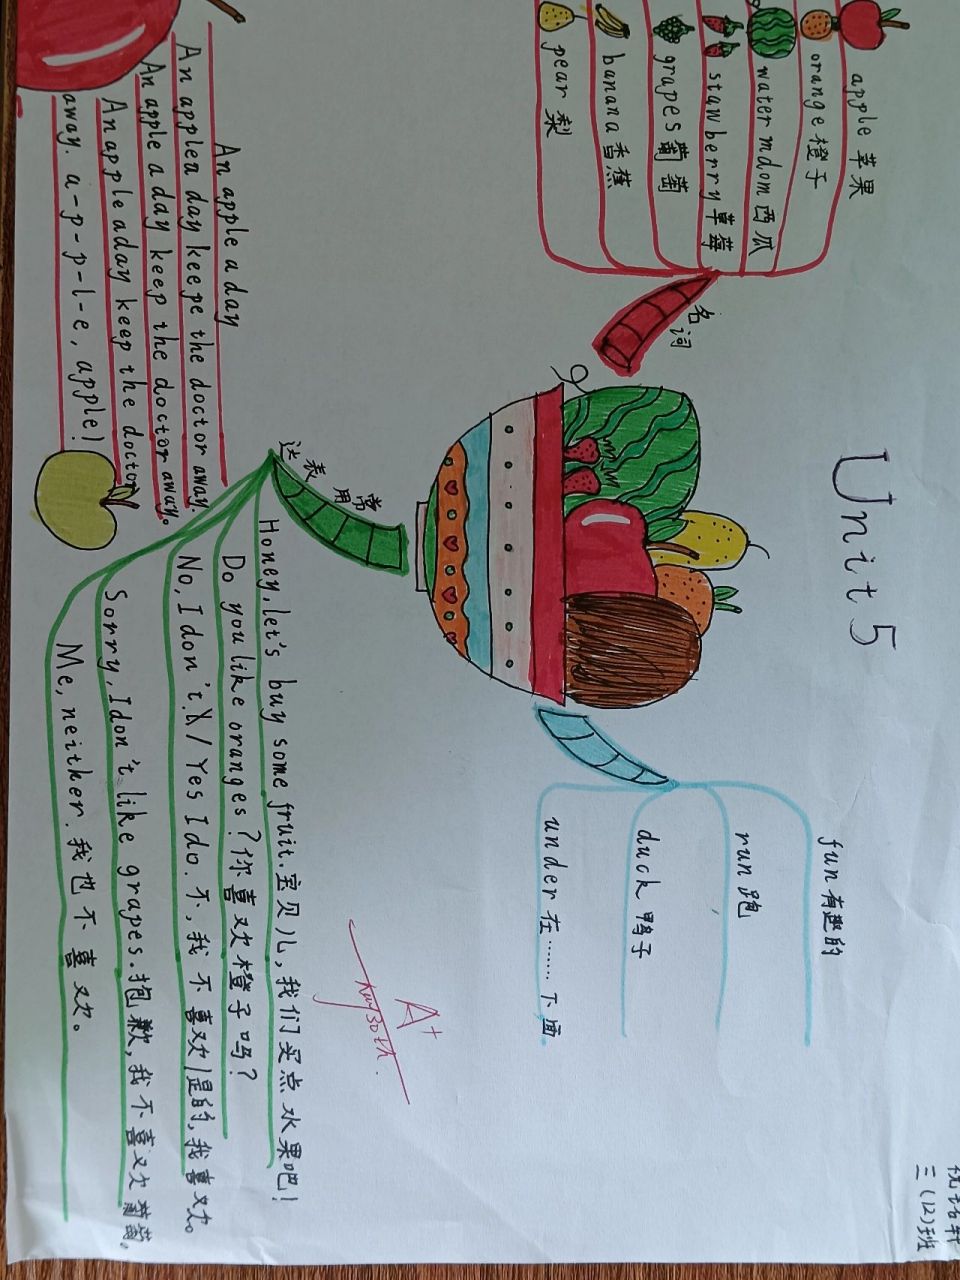 Unit 5
三(12)班
名词
apple 苹果
orange 橙子
water mdom 西瓜
stawberry 草莓
grapes 葡萄
banana 香蕉
pear 梨
fun 有趣的
run 跑
duck 鸭子
under 在……下面
An apple a day
An applea day keepe the doctor away.
An apple a day keep the doctor away.
An apple a day keep the doctor
away. a-p-p-l-e, apple!
常用表达
Honey, let's buy some fruit. 宝贝儿，我们买点水果吧！
Do you like oranges? 你喜欢橙子吗？
No, I don't. / Yes I do. 不，我不喜欢/是的，我喜欢。
Sorry, I don't like grapes. 抱歉，我不喜欢葡萄。
Me, neither. 我也不喜欢。
A+